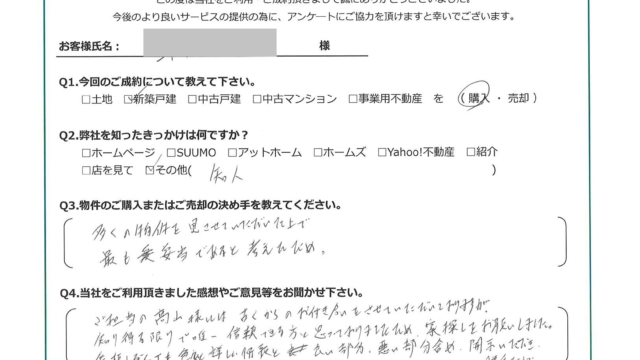 この度は当社をご利用・ご成約頂きまして誠にありがとうございました。
今後のより良いサービスの提供の為に、アンケートにご協力を頂けますと幸いでございます。
お客様氏名： 様
Q1.今回のご成約について教えて下さい。
□土地 ☑新築戸建 □中古戸建 □中古マンション □事業用不動産 を （ 購入 ・ 売却 ）
Q2.弊社を知ったきっかけは何ですか？
□ホームページ □SUUMO □アットホーム □ホームズ □Yahoo!不動産 □紹介
□店を見て ☑その他( 知人 )
Q3.物件のご購入またはご売却の決め手を教えてください。
多くの物件を見させていただいた上で
最も妥当であると考えたため。
Q4.当社をご利用頂きました感想やご意見等をお聞かせ下さい。
ご担当の高山様には古くからのお付き合いをさせていただいておりますが、
知り得る限りで唯一信頼できる方と思っておりましたため、家探しをお願いしました。
良い部分、悪い部分含め、開示いただき